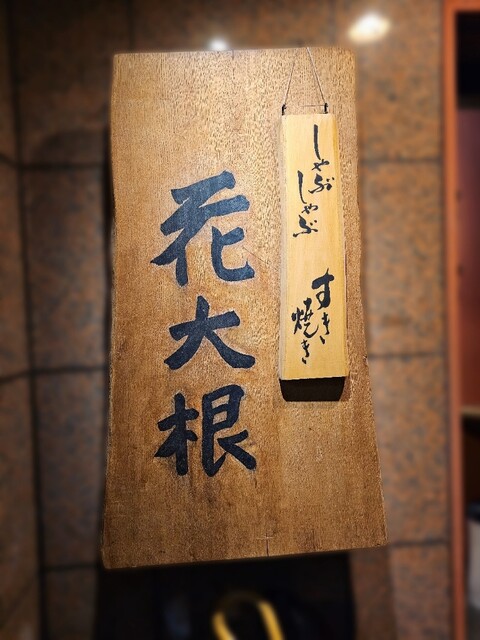 しゃぶしゃぶ
すき焼き
花大根